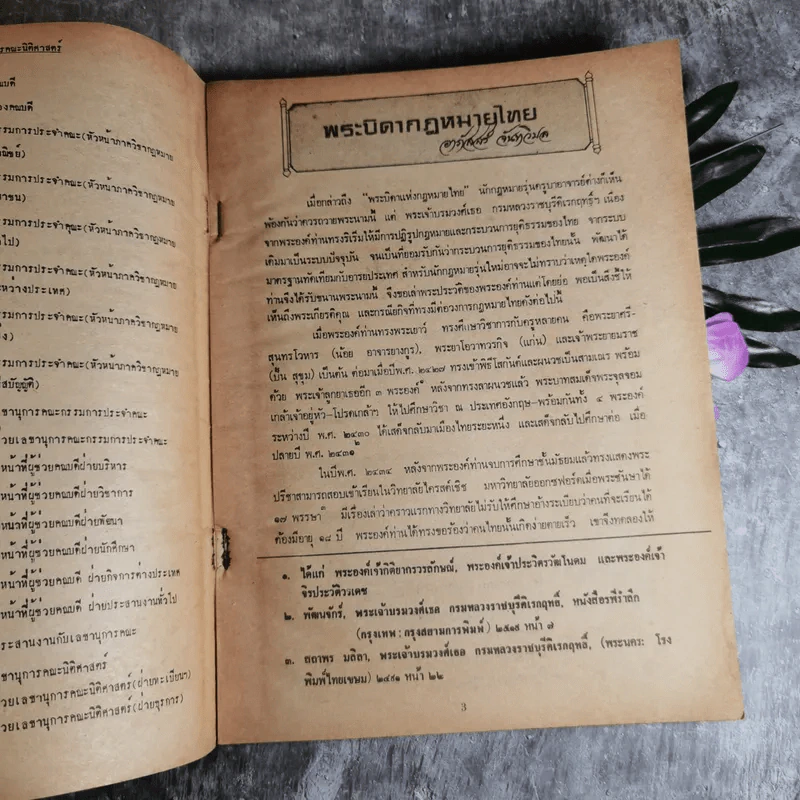 การคณะนิติศาสตร์
คณบดี
องคณบดี
รรมการประจำคณะ(หัวหน้าภาควิชากฎหมาย
ณิชย์)
รรมการประจำคณะ(หัวหน้าภาควิชากฎหมาย
าชน)
รรมการประจำคณะ(หัวหน้าภาควิชากฎหมาย
ั่วไป)
รรมการประจำคณะ(หัวหน้าภาควิชากฎหมาย
หว่างประเทศ)
รรมการประจำคณะ(หัวหน้าภาควิชากฎหมาย
รรมการประจำคณะ(หัวหน้าภาควิชากฎหมาย
สบัญญัติ)
ลขานุการคณะกรรมการประจำคณะ
่วยเลขานุการคณะกรรมการประจำคณะ
หน้าที่ผู้ช่วยคณบดีฝ่ายบริหาร
หน้าที่ผู้ช่วยคณบดีฝ่ายวิชาการ
หน้าที่ผู้ช่วยคณบดีฝ่ายพัฒนา
หน้าที่ผู้ช่วยคณบดีฝ่ายนักศึกษา
หน้าที่ผู้ช่วยคณบดี ฝ่ายกิจการต่างประเทศ
หน้าที่ผู้ช่วยคณบดี ฝ่ายประสานงานทั่วไป
ระสานงานกับเลขานุการคณะ
ขานุการคณะนิติศาสตร์
วยเลขานุการคณะนิติศาสตร์(ฝ่ายทะเบียน)
วยเลขานุการคณะนิติศาสตร์(ฝ่ายธุรการ)
พระบิดากฎหมายไทย
จันทวิมล
เมื่อกล่าวถึง "พระบิดาแห่งกฎหมายไทย" นักกฎหมายรุ่นครูบาอาจารย์ต่างก็เห็น
พ้องกันว่าควรถวายพระนามนี้ แด่ พระเจ้าบรมวงศ์เธอ กรมหลวงราชบุรีดิเรกฤทธิ์ฯ เนื่อง
จากพระองค์ท่านทรงริเริ่มให้มีการปฏิรูปกฎหมายและกระบวนการยุติธรรมของไทย จากระบบ
เดิมมาเป็นระบบปัจจุบัน จนเป็นที่ยอมรับกันว่ากระบวนการยุติธรรมของไทยนั้น พัฒนาได้
มาตรฐานทัดเทียมกับอารยประเทศ สำหรับนักกฎหมายรุ่นใหม่อาจจะไม่ทราบว่าเหตุใดพระองค์
ท่านจึงได้รับขนานพระนามนี้ จึงขอเล่าพระประวัติของพระองค์ท่านแต่โดยย่อ พอเป็นสิ่งชี้ให้
เห็นถึงพระเกียรติคุณ และกรณียกิจที่ทรงมีต่อวงการกฎหมายไทยดังต่อไปนี้
เมื่อพระองค์ท่านทรงพระเยาว์ ทรงศึกษาวิชาการกับครูหลายคน คือพระยาศรี-
สุนทรโวหาร (น้อย อาจารยางกูร), พระยาโอวาทวรกิจ (แก่น) และเจ้าพระยายมราช
(ปั้น สุขุม) เป็นต้น ต่อมาเมื่อปีพ.ศ. ๒๔๒๗ ทรงเข้าพิธีโสกันต์และผนวชเป็นสามเณร พร้อม
ด้วย พระเจ้าลูกยาเธออีก ๓ พระองค์๑ หลังจากทรงลาผนวชแล้ว พระบาทสมเด็จพระจุลจอม
เกล้าเจ้าอยู่หัว-โปรดเกล้าฯ ให้ไปศึกษาวิชา ณ ประเทศอังกฤษ-พร้อมกันทั้ง ๔ พระองค์
ระหว่างปี พ.ศ. ๒๔๓๐ ได้เสด็จกลับมาเมืองไทยระยะหนึ่ง และเสด็จกลับไปศึกษาต่อ เมื่อ
ปลายปี พ.ศ. ๒๔๓๑๒
ในปีพ.ศ. ๒๔๓๔ หลังจากพระองค์ท่านจบการศึกษาชั้นมัธยมแล้วทรงแสดงพระ
ปรีชาสามารถสอบเข้าเรียนในวิทยาลัยไครสต์เชิช มหาวิทยาลัยออกซฟอร์ดเมื่อพระชันษาได้
๑๗ พรรษา๓ มีเรื่องเล่าว่าคราวแรกทางวิทยาลัยไม่รับให้ศึกษาอ้างระเบียบว่าคนที่จะเรียนได้
ต้องมีอายุ ๑๘ ปี พระองค์ท่านได้ทรงขอร้องว่าคนไทยนั้นเกิดง่ายตายเร็ว เขาจึงทดลองให้
๑. ได้แก่ พระองค์เจ้ากิติยากรวรลักษณ์, พระองค์เจ้าประวิตรวัฒโนดม และพระองค์เจ้า
จิรประวัติวรเดช
๒. พัฒนจักร์, พระเจ้าบรมวงศ์เธอ กรมหลวงราชบุรีดิเรกฤทธิ์, หนังสือรพีรำลึก
(กรุงเทพ : กรุงสยามการพิมพ์) ๒๕๑๙ หน้า ๗
๓. สถาพร มลิลา, พระเจ้าบรมวงศ์เธอ กรมหลวงราชบุรีดิเรกฤทธิ์, (พระนคร: โรง
พิมพ์ไทยเขษม) ๒๔๙๑ หน้า ๒๒
3